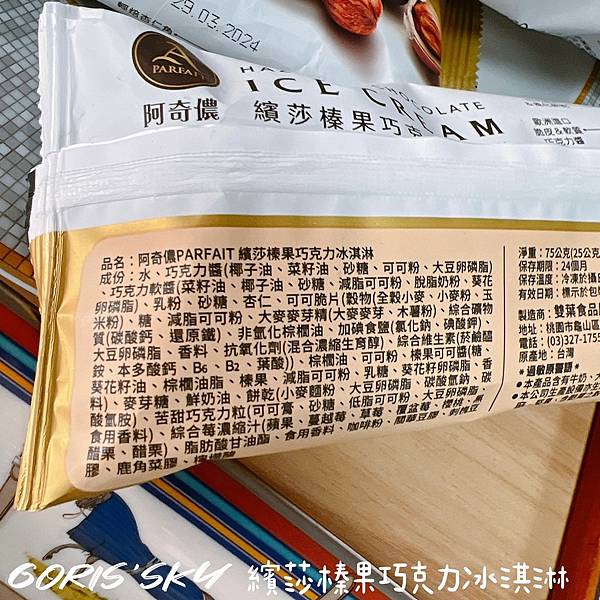 29.03.2024
A
PARFAIT
ICE CREAM
阿奇儂 繽莎榛果巧克
歐洲進口
脆皮&軟質
巧克力醬
品名：阿奇儂PARFAIT 繽莎榛果巧克力冰淇淋
成份：水、巧克力醬(椰子油、菜籽油、砂糖、可可粉、大豆卵磷脂)
、巧克力軟醬(菜籽油、椰子油、砂糖、減脂可可粉、脫脂奶粉、葵花
卵磷脂)、乳粉、砂糖、杏仁、可可脆片(穀物(全穀小麥、小麥粉、玉
米粉)、糖、減脂可可粉、大麥麥芽精(大麥麥芽、木薯粉)、綜合礦物
質(碳酸鈣、還原鐵)、非氫化棕櫚油、加碘食鹽(氯化鈉、碘酸鉀)、
大豆卵磷脂、香料、抗氧化劑(混合濃縮生育醇)、綜合維生素(菸鹼醯
胺、本多酸鈣、B₆、B₂、葉酸))、棕櫚油、可可粉、榛果可可醬(糖、
葵花籽油、棕櫚油脂、榛果、減脂可可粉、乳糖、葵花卵磷脂、香
料)、麥芽糖、鮮奶油、餅乾(小麥麵粉、大豆卵磷脂、碳酸氫鈉、碳
酸氫胺)、苦甜巧克力粒(可可膏、砂糖、低脂可可粉、大豆卵磷脂、
食用香料)、綜合莓濃縮汁(蘋果、蔓越莓、草莓、覆盆莓、櫻桃、黑
醋栗、醋栗)、脂肪酸甘油酯、食用香料、咖啡粉、關華豆膠、刺槐豆
膠、鹿角菜膠、檸檬酸
淨重：75公克(25公
保存期限：24個月
保存溫度：冷凍於攝
有效日期：標示於包
製造商：雙葉食品
地址：桃園市龜山區
電話：(03)327-175
原產地：台灣
*過敏原警語*
●本產品含有牛奶、大
●本公司生產
GORIS'SKY 繽莎榛果巧克力冰淇淋